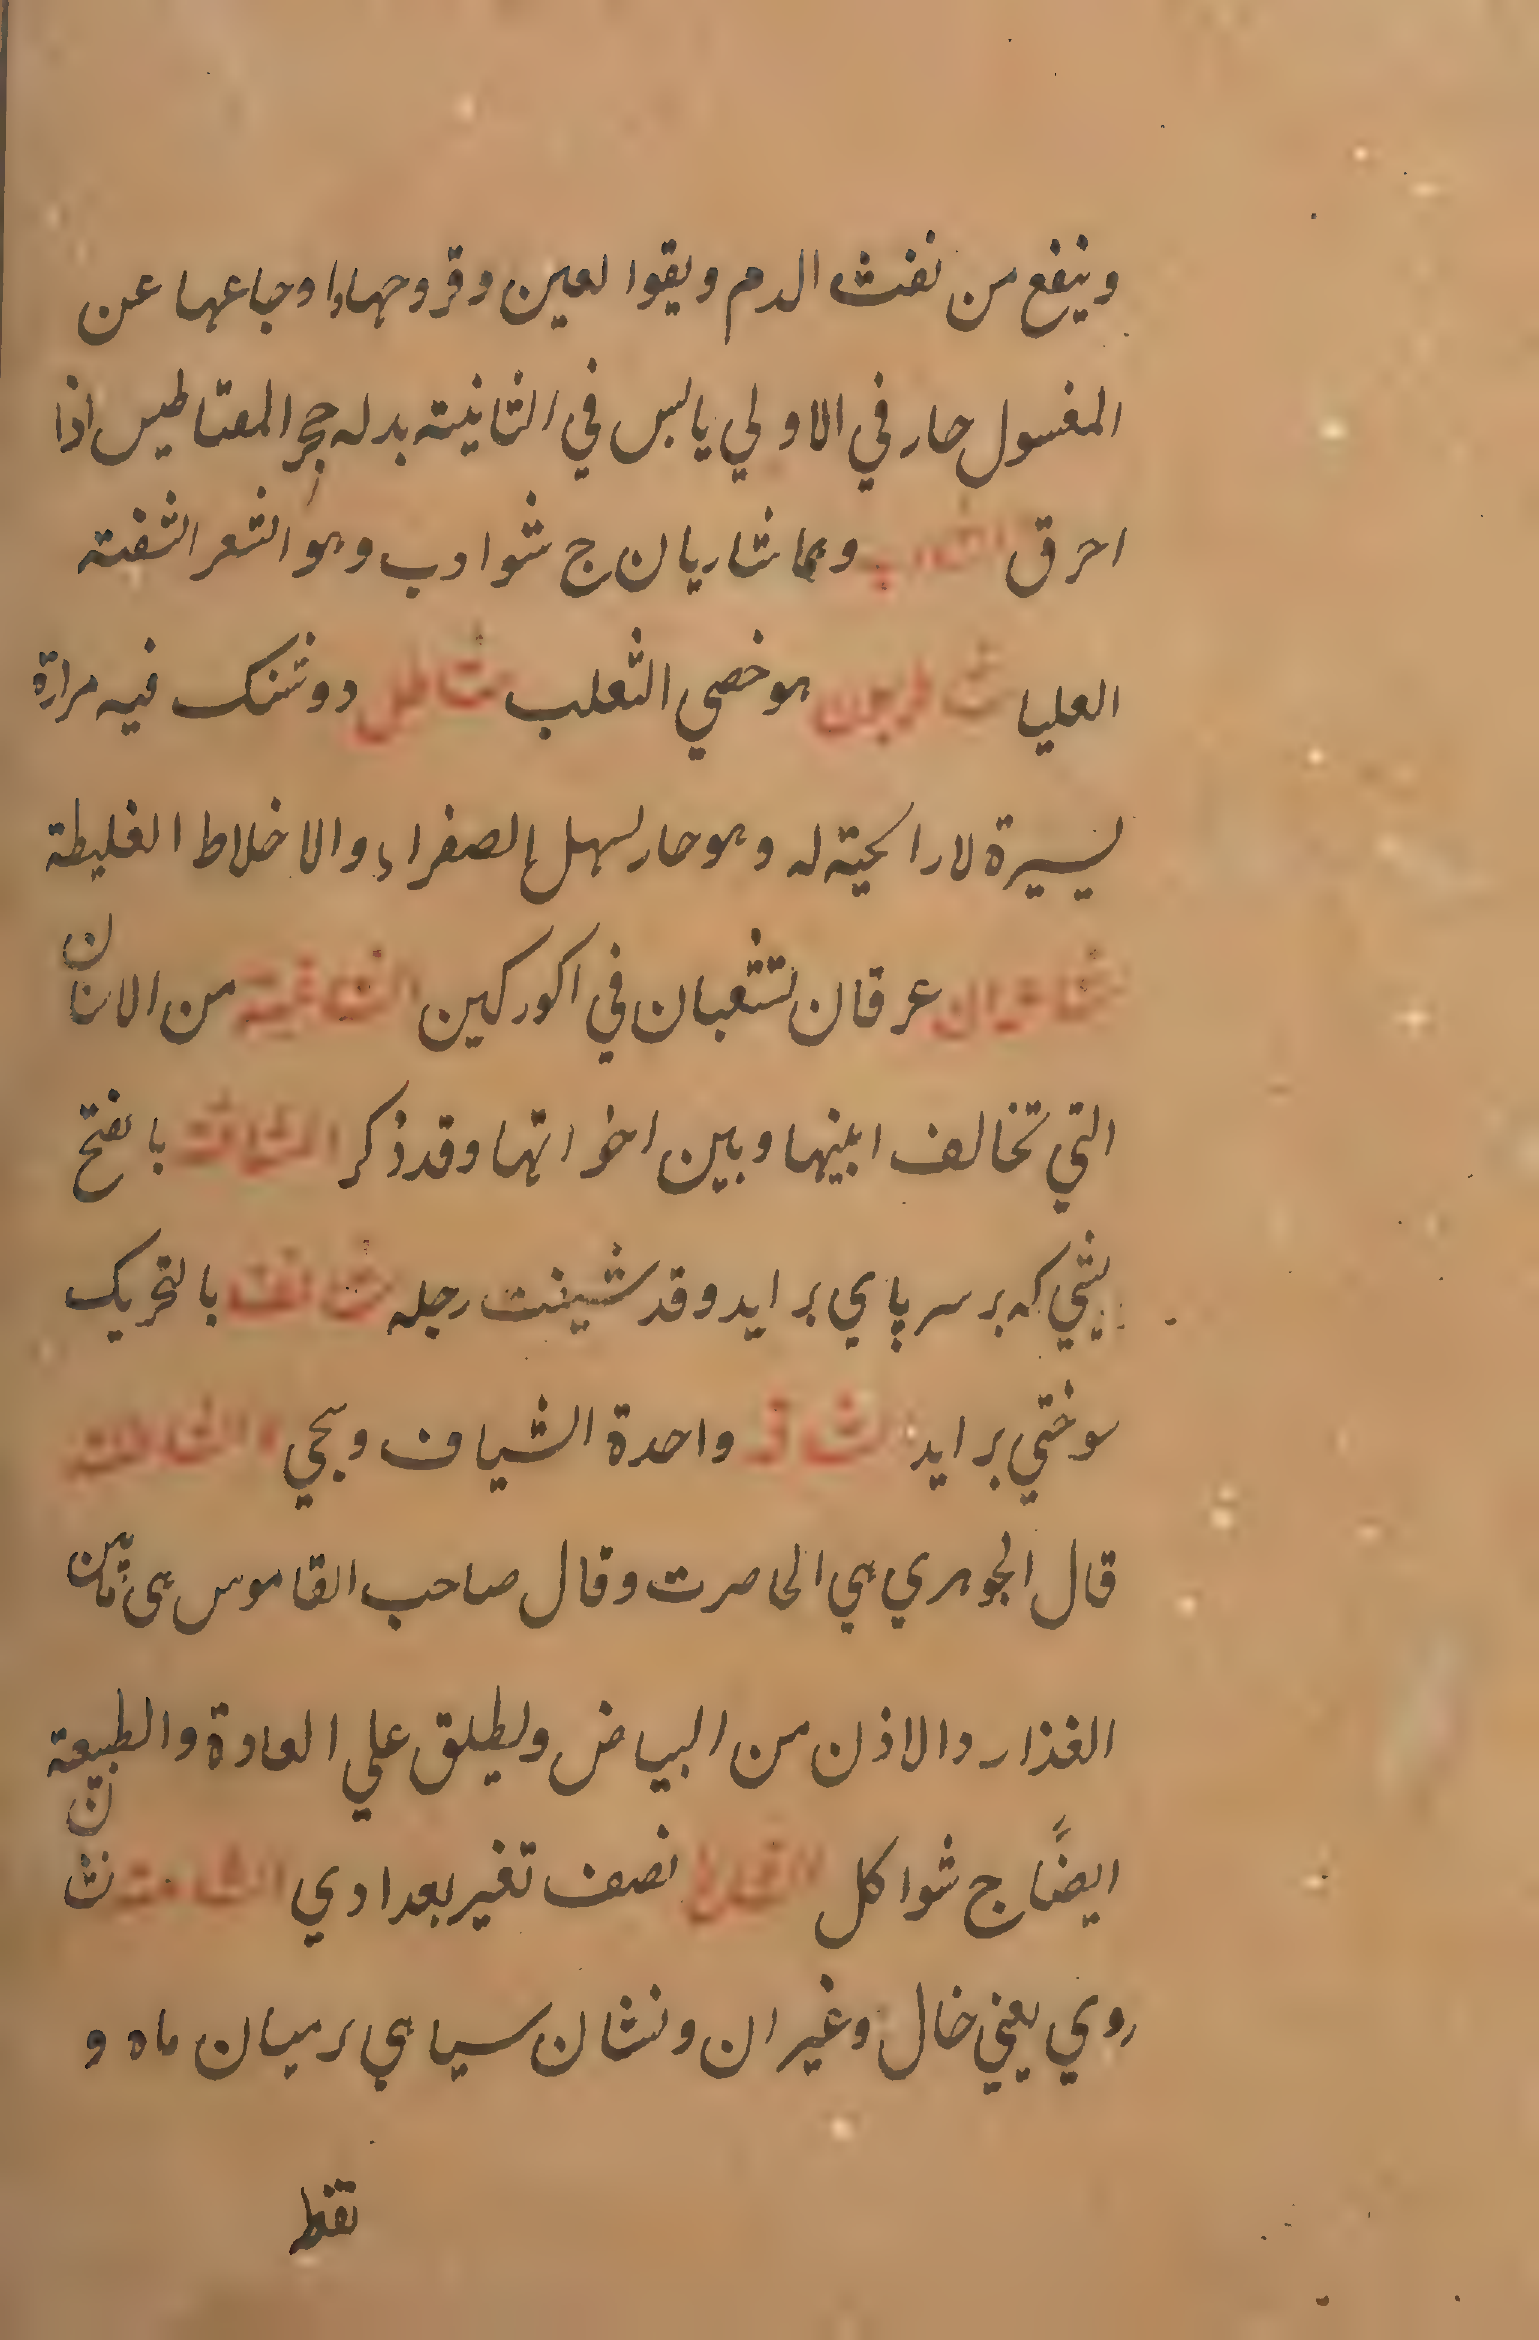 وينفع من نفث الدم ويقوا لعين وقروحها واوجاعها عن
المغسول حار في الاولي يالبس في الثانية بدله حجر المعتاطيس اذا
احرق الشارب وهما شاربان ج شوادب وهو الشعر الشفتة
العليا هو خصي الثعلب شاطل دوشنك فيه مرارة
يسيرة لا رايحته له وهو حار يسهل الصفراء والاخلاط الغليظة
عرقان تشعبان في اكوركين الشاغية من الاسنان
التي تخالف ابنيها وبين اخواتها وقد ذكر الشافة بالفتح
يشي كه بر سر پاي برايد وقد شيئفت رجله بالتحريك
سوختي برايد واحدة الشياف وسجي الشاكلة
قال الجوهري هي الخاصرت وقال صاحب القاموس هى مابين
الغذار والاذن من البياض ويطلق علي العادة والطبيعة
ايضًا ج شواكل نصف تغير بعدادي الشامة نشان
روي يعني خال وغير ان ونشان سياهي برميان ماه و
نقط